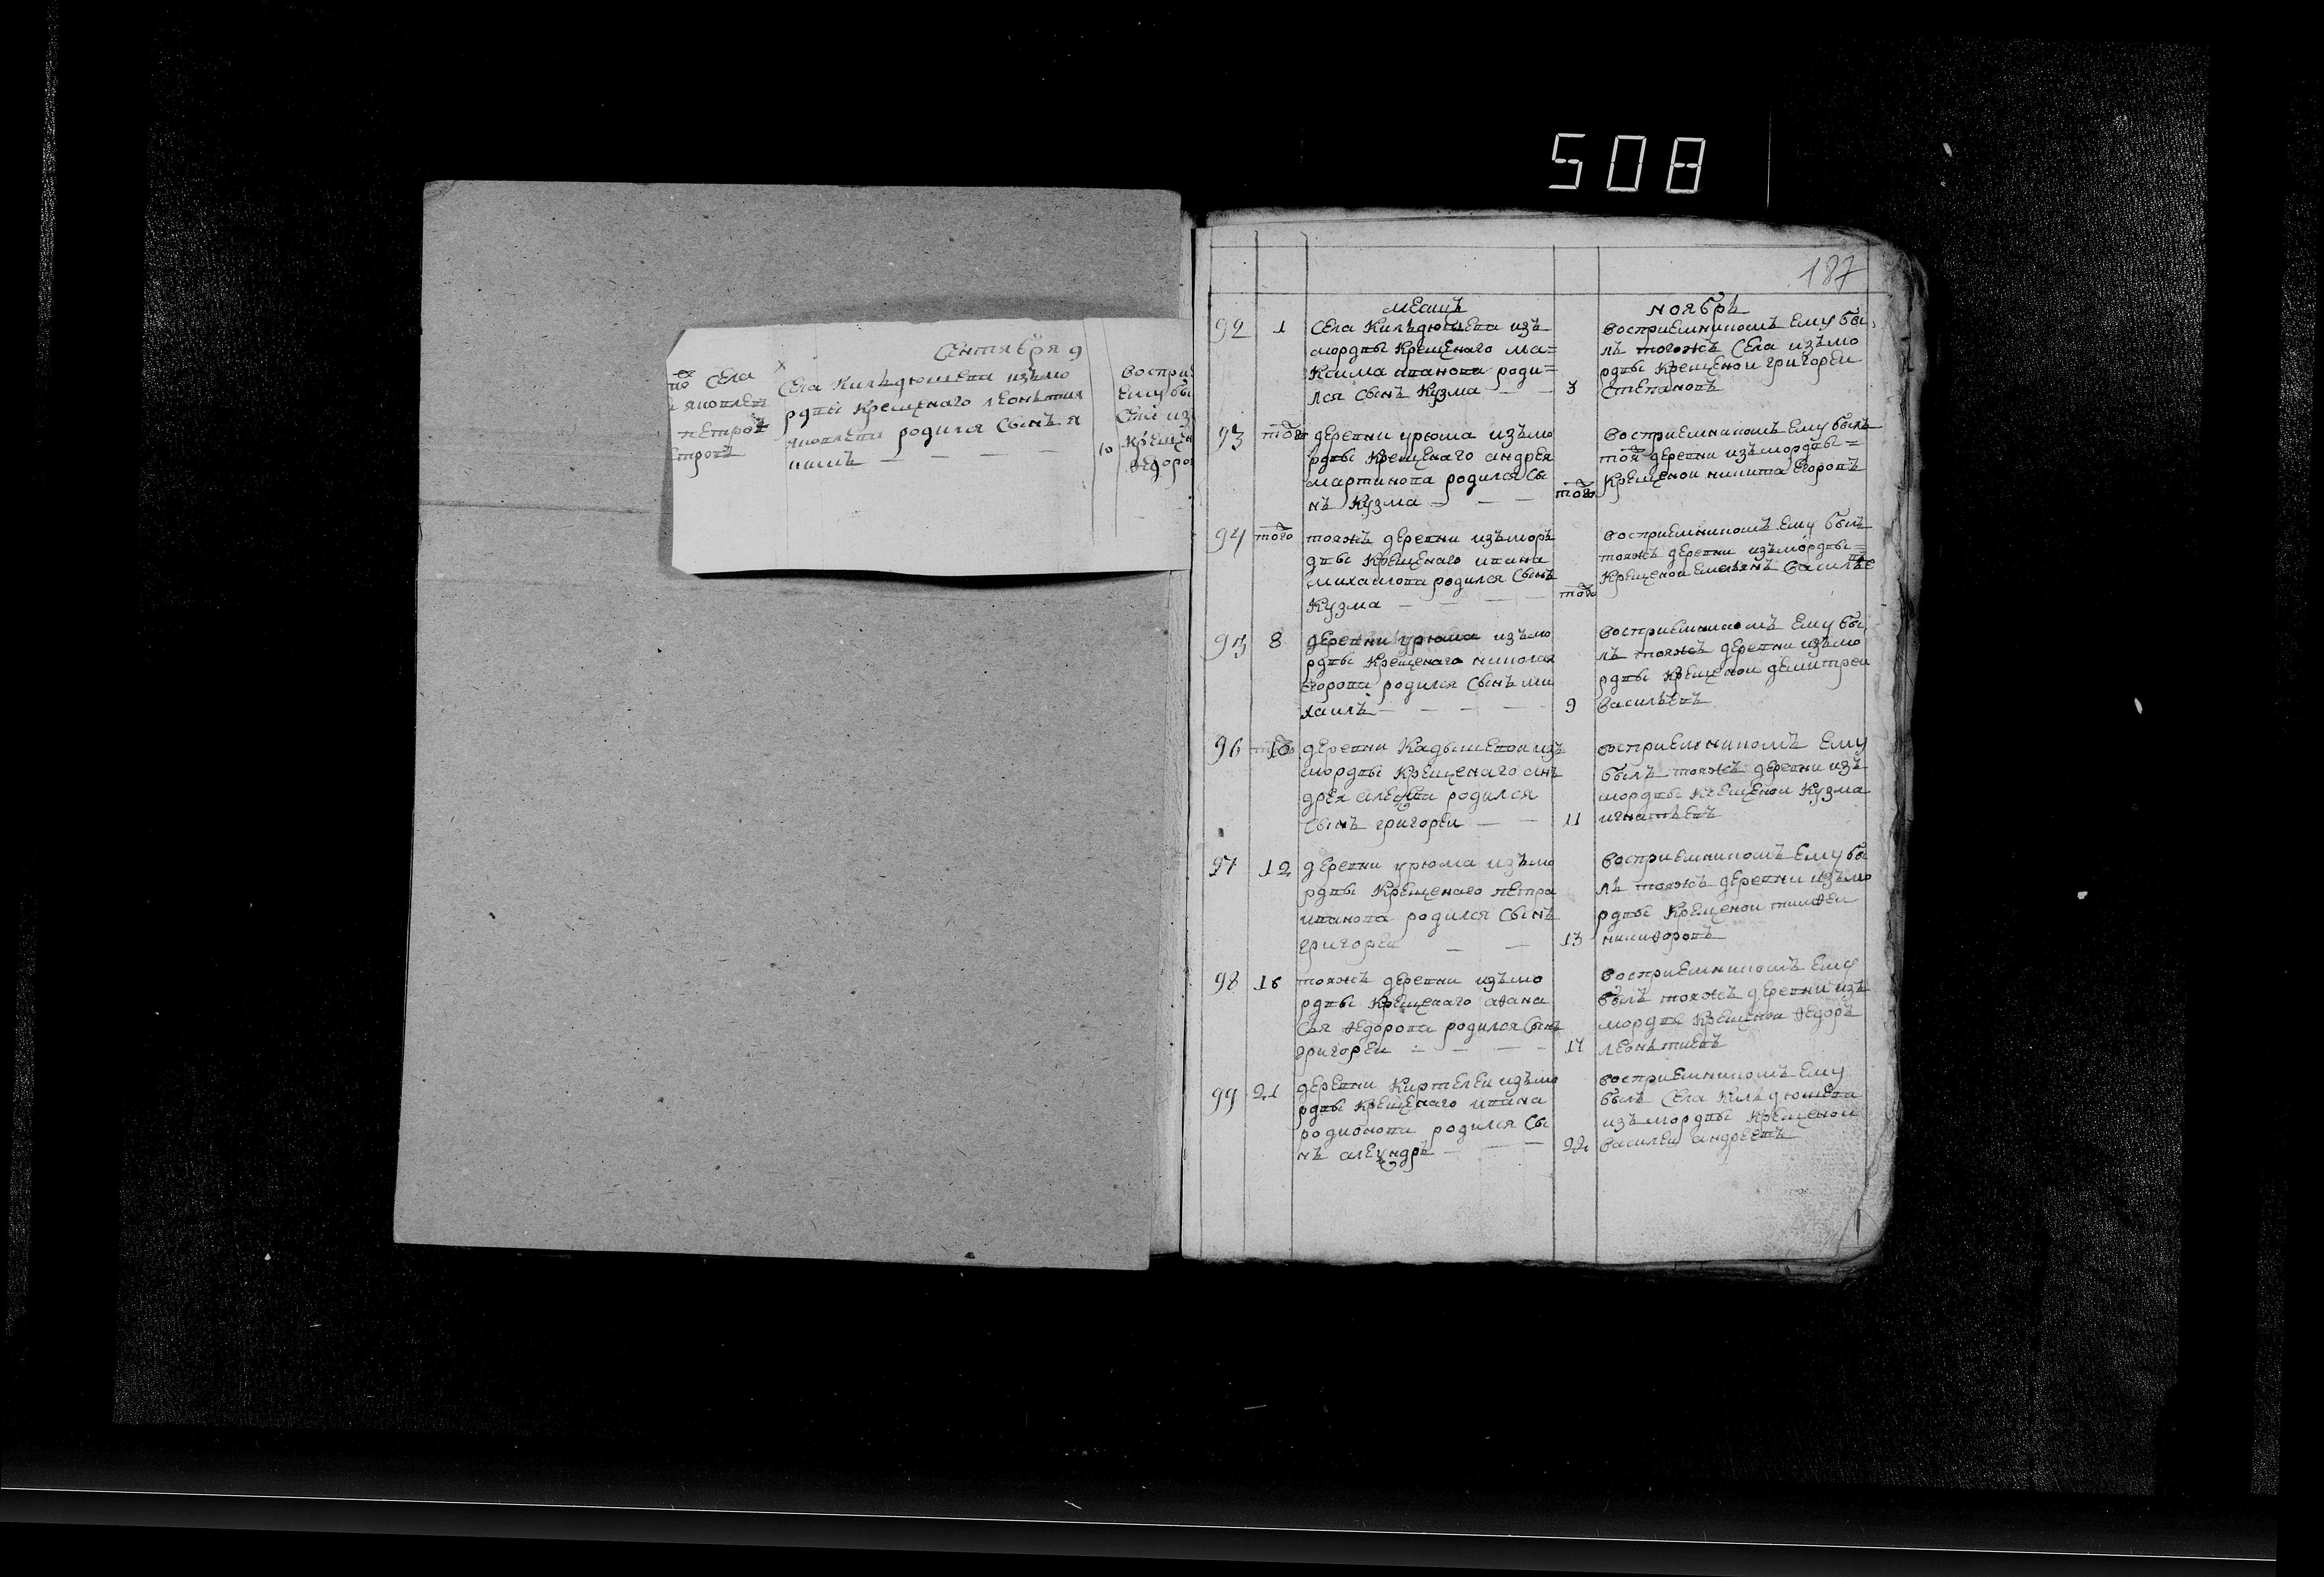 508
187
Сентября 9
Села
Села Кильдюшева изъ мо
рдвы крещенаго леонътия
яковлева родился сынъ я
кимъ
10
воспри
ему бы
села из
крещен
федоро
месяцъ ноябрь
92 1 села Кильдюшева изъ
мордвы крещенаго ма=
ксима иванова роди=
лся сынъ Кузма 3
восприемникомъ ему бы
лъ тогожъ села изъ мо
рдвы крещеной григореи
степановъ
93 того деревни урюма изъ мо
рдвы крещенаго андрея
мартинова родился сы
нъ Кузма того
восприемникомъ ему былъ
тоя деревни изъ мордвы=
крещеной никита егоровъ
94 того тояжъ деревни изъ моръ
двы крещенаго ивана
михаилова родился сынъ
Кузма того
восприемникомъ ему былъ
тояжъ деревни изъ мордвы=
крещеной емельянъ василъе
въ
95 8 деревни урюма изъ мо
рдвы крещенаго николая
егорова родился сынъ ми
хаилъ 9
восприемникомъ ему бы
лъ тояжъ деревни изъ мо
рдвы крещеной демитреи
васильевъ
96 10 деревни Кадышевои изъ
мордвы крещенаго анъ
дрея алеѯева родился
сынъ григореи 11
восприемникомъ ему
былъ тояжъ деревни изъ
мордвы крещеной Кузма
игнатьевъ
97 12 деревни урюма изъ мо
рдвы крещенаго петра
иванова родился сынъ
григореи 13
восприемникомъ ему бы
лъ тояжъ деревни изъ мо
рдвы крещеной тимофеи
никифоровъ
98 16 тояжъ деревни изъ мо
рдвы крещенаго афана
сья федорова родился сынъ
григореи 17
восприемникомъ ему
былъ тояжъ деревни изъ
мордвы крещеной федоръ
леонътиевъ
99 21 деревни Киртелеи изъ мо
рдвы крещенаго ивана
родионова родился сы
нъ алеѯандръ 22
восприемникомъ ему
былъ села Кильдюшева
изъ мордвы крещеной
василеи андреевъ